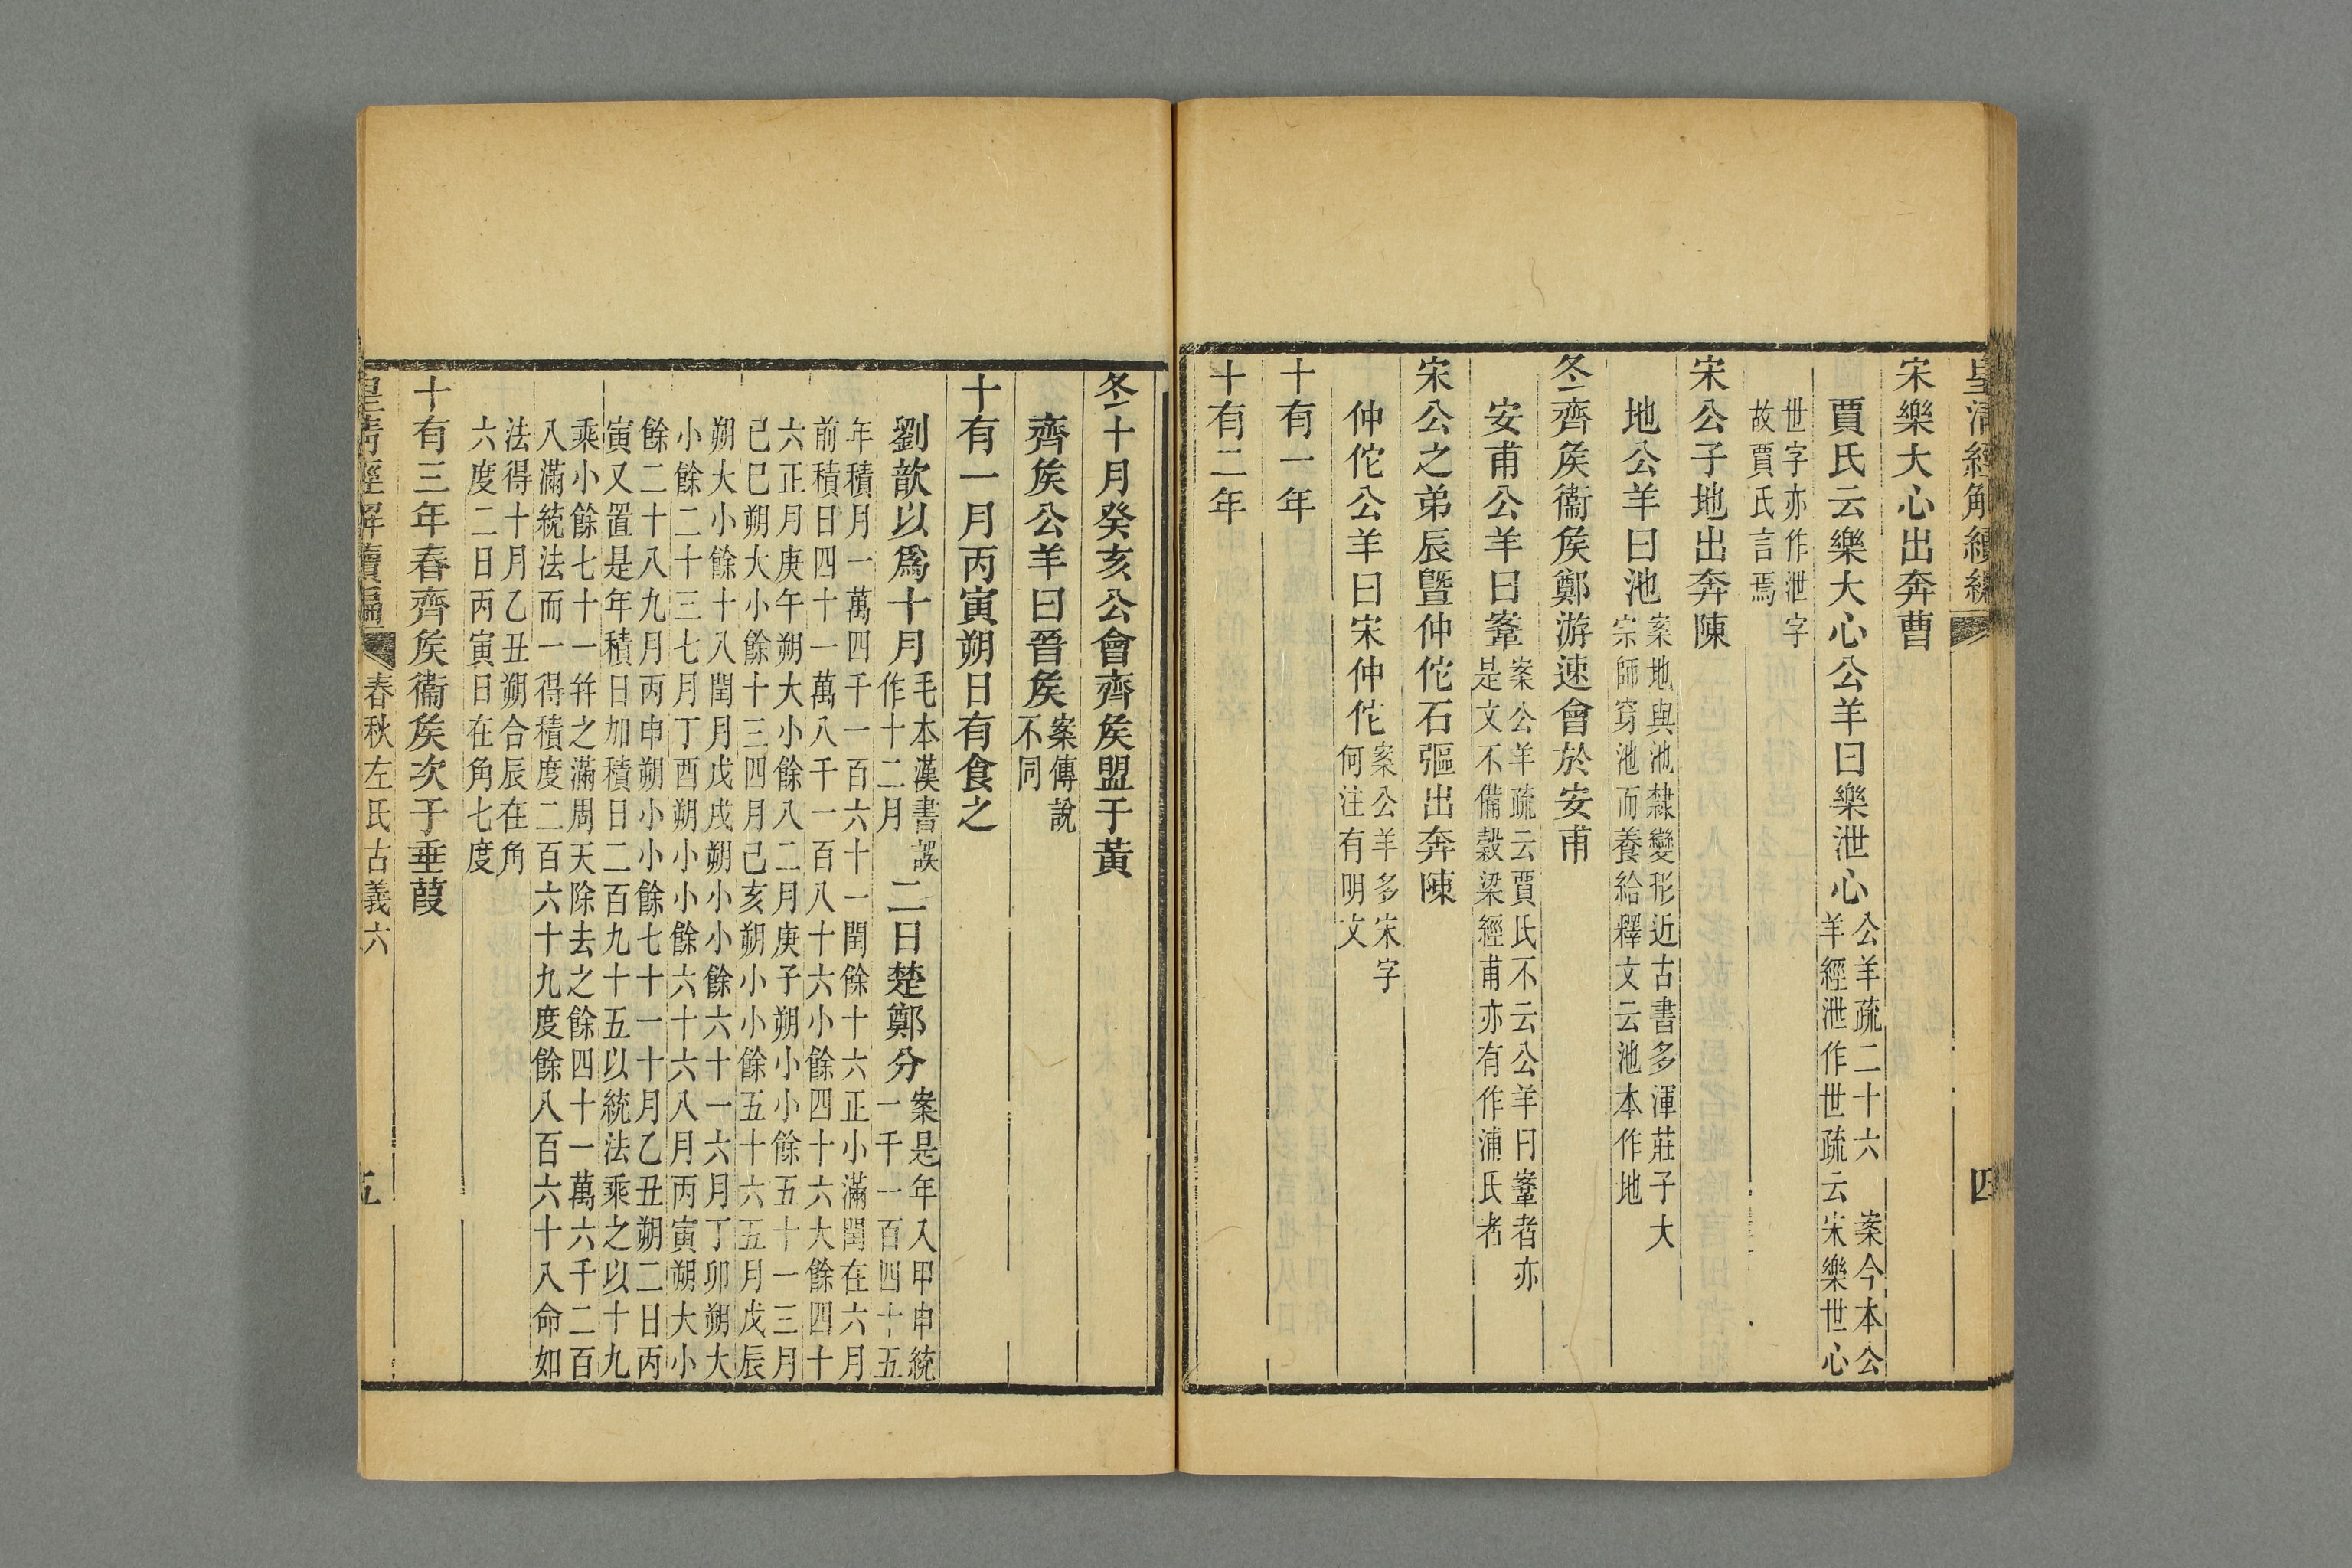 皇清經解續編
四
宋樂大心出奔曹
賈氏云樂大心公羊曰樂泄心
公羊疏二十六 案今本公
羊經泄作世疏云宋樂世心
世字亦作泄字
故賈氏言焉
宋公子地出奔陳
地公羊曰池
案地與池隸變形近古書多渾莊子大
宗師穿池而養給釋文云池本作地
冬齊矦衞矦鄭游速會於安甫
安甫公羊曰鞌
案公羊疏云賈氏不云公羊曰鞌者亦
是文不備穀梁經甫亦有作浦氏者
宋公之弟辰暨仲佗石彄出奔陳
仲佗公羊曰宋仲佗
案公羊多宋字
何注有明文
十有一年
十有二年
冬十月癸亥公會齊矦盟于黃
齊矦公羊曰晉矦
案傳說
不同
十有一月丙寅朔日有食之
劉歆以爲十月
毛本漢書誤
作十二月
二日楚鄭分
案是年入甲申統
一千一百四十五
年積月一萬四千一百六十一閏餘十六正小滿閏在六月
前積日四十一萬八千一百八十六小餘四十六大餘四十
六正月庚午朔大小餘八二月庚子朔小小餘五十一三月
己巳朔大小餘十三四月己亥朔小小餘五十六五月戊辰
朔大小餘十八閏月戊戌朔小小餘六十一六月丁卯朔大
小餘二十三七月丁酉朔小小餘六十六八月丙寅朔大小
餘二十八九月丙申朔小小餘七十一十月乙丑朔二日丙
寅又置是年積日加積日二百九十五以統法乘之以十九
乘小餘七十一幷之滿周天除去之餘四十一萬六千二百
八滿統法而一得積度二百六十九度餘八百六十八命如
法得十月乙丑朔合辰在角
六度二日丙寅日在角七度
十有三年春齊矦衞矦次于垂葭
皇清經解續編
春秋左氏古義六
五